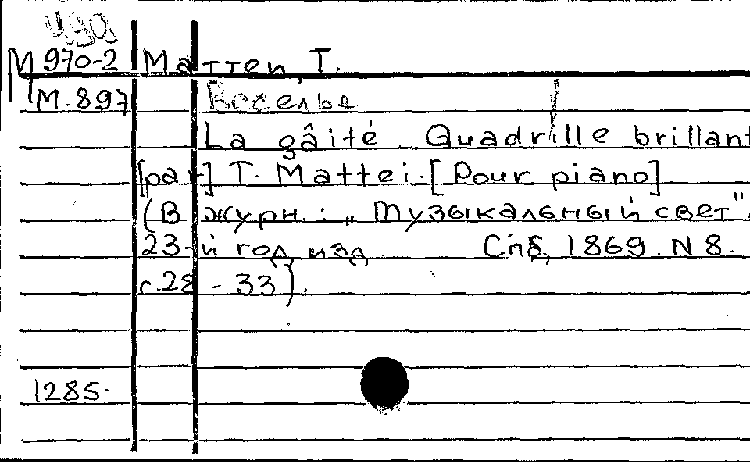 М 970-2 Маттеи, Т.
М.897 Веселье
La gâité. Quadrille brillant
[par] T. Mattei. [Pour piano]
(В журн.: „Музыкальный свет".
23-й год изд. Спб, 1869. N 8.
с.28 - 33).
1285.